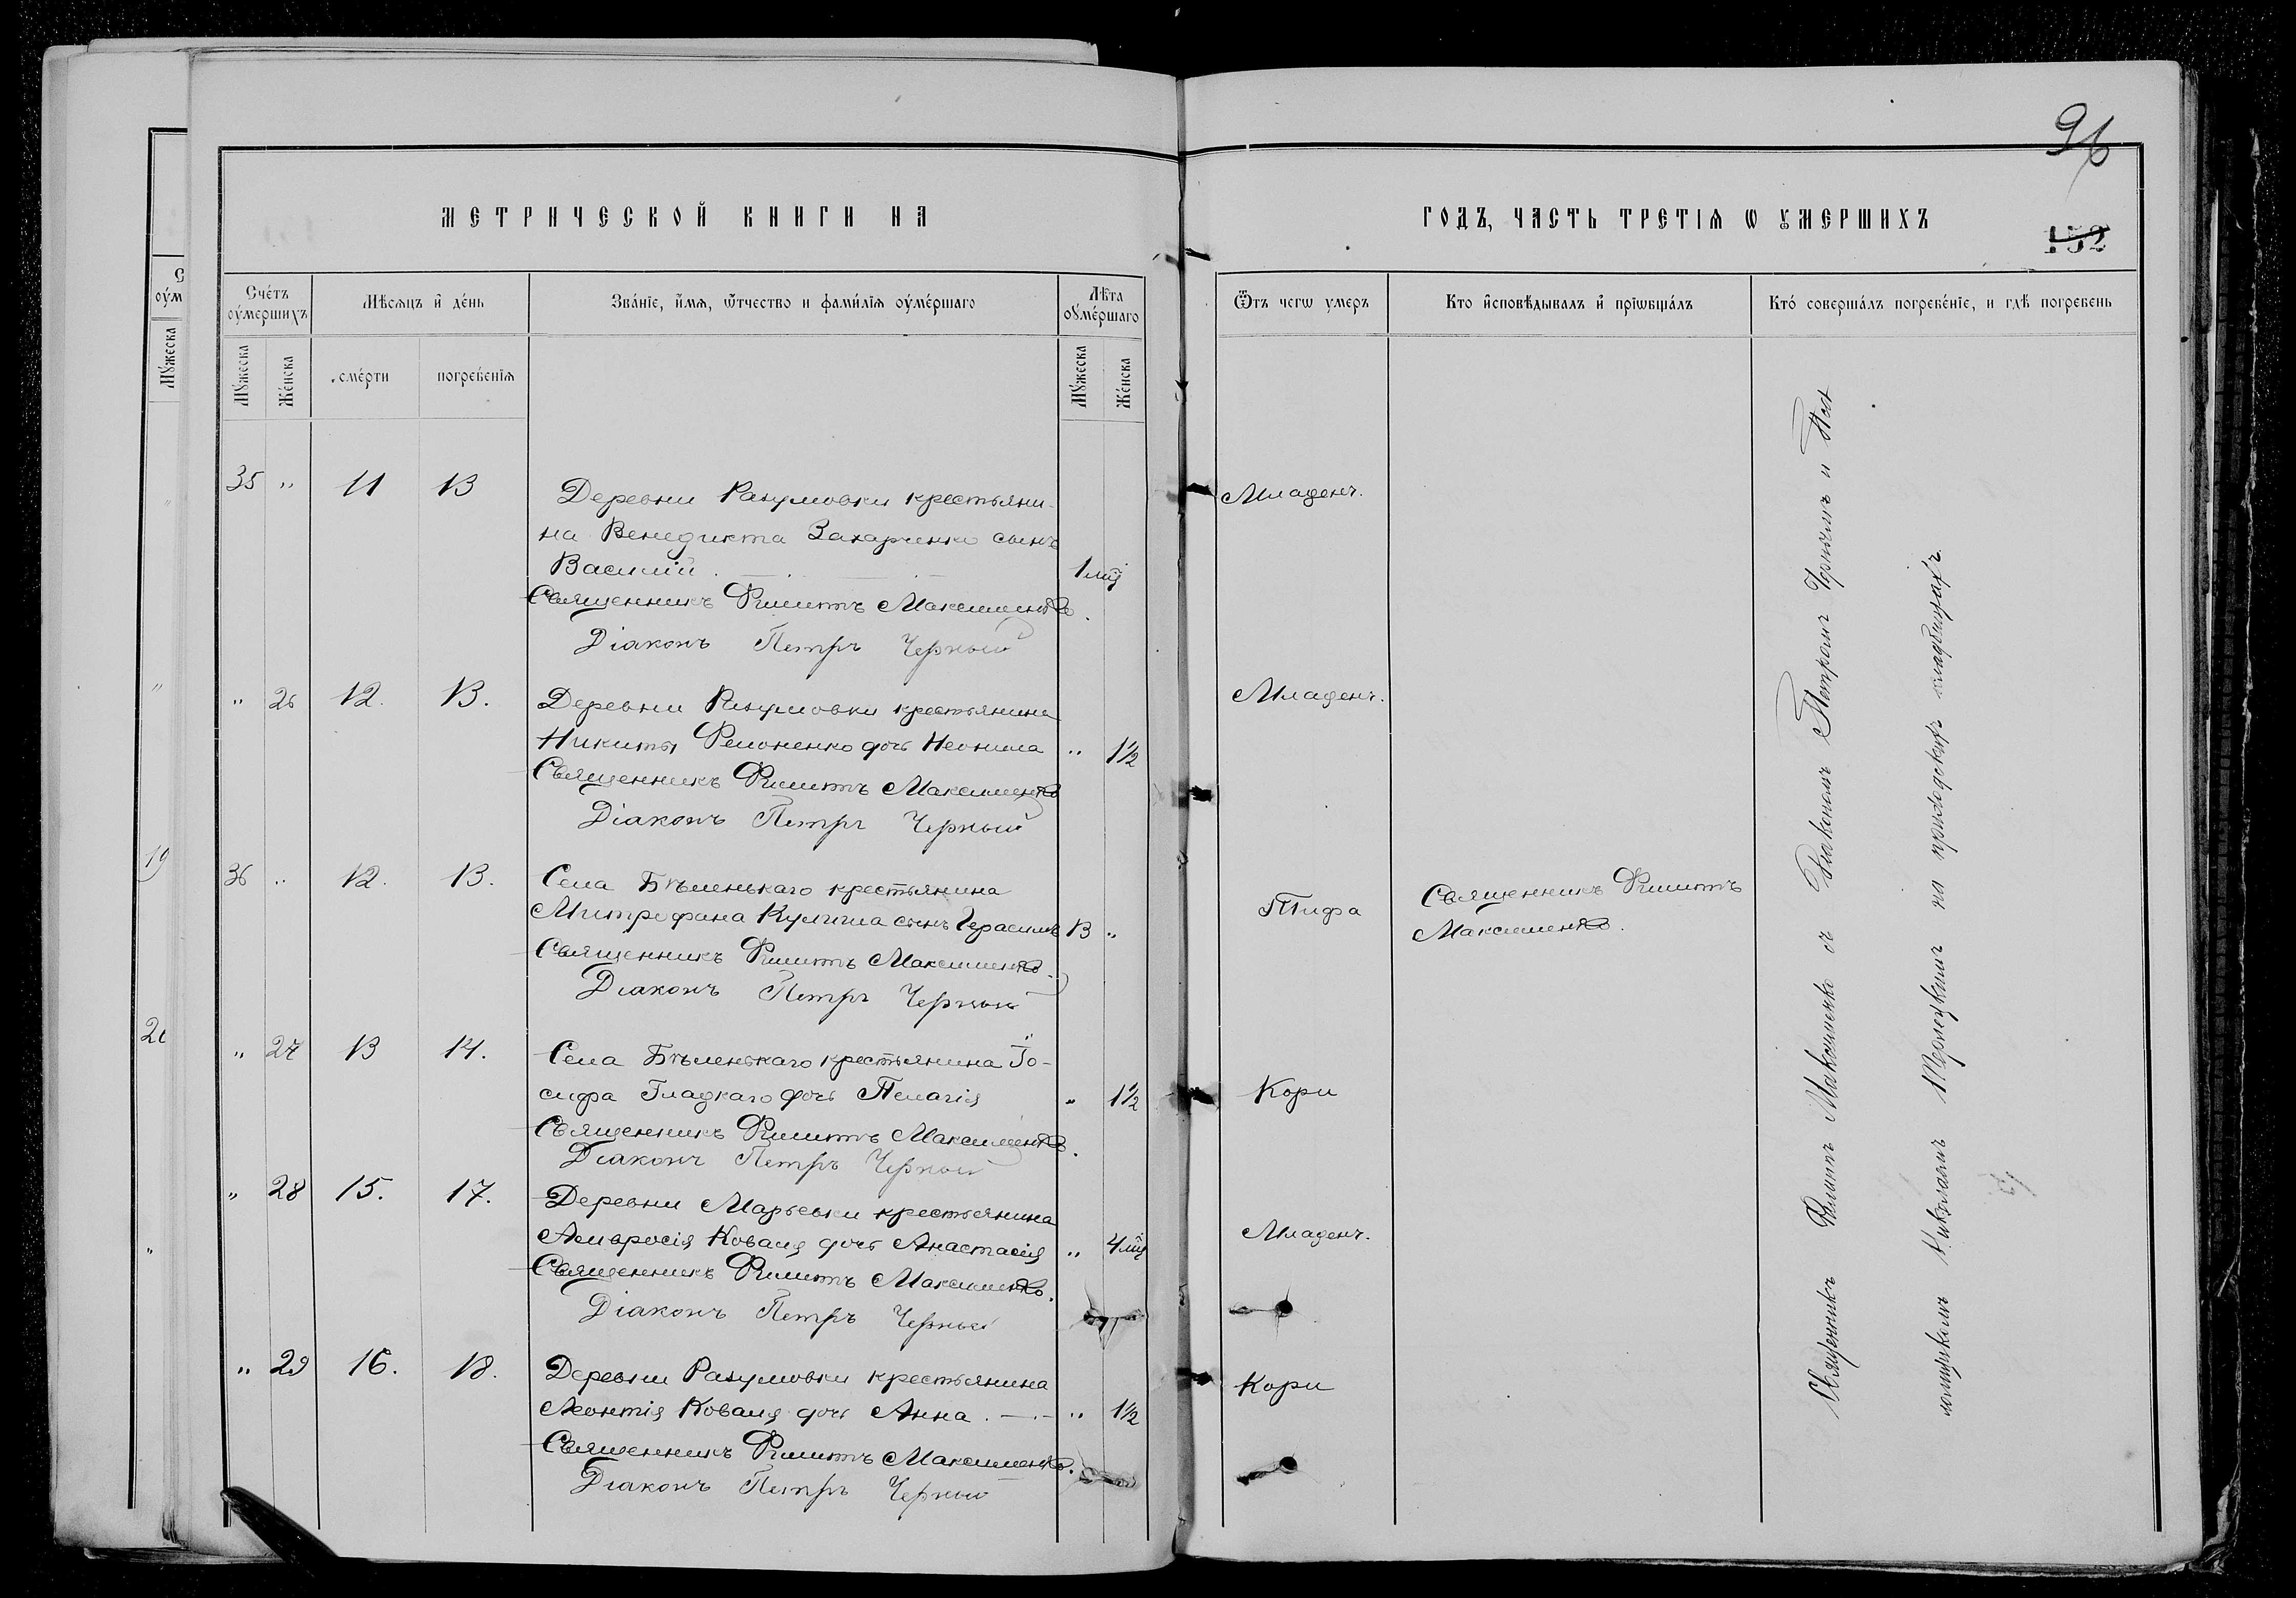 96
МЕТРИЧЕСКОЙ КНИГИ НА
ГОДЪ, ЧАСТЬ ТРЕТІѦ Ѡ ОУМЕРШИХЪ
152
Счетъ оумершихъ
Мѣсѧцъ и день
Званіе, имѧ, ѿчество и фамиліѧ оумершаго
Лѣта оумершаго
Ѿтъ чегѡ умеръ
Кто исповѣдывалъ и пріѡбщалъ
Кто совершалъ погребеніе, и гдѣ погребенъ
Мужеска
Женска
смерти
погребеніѧ
Мужеска
Женска
35 " 11 13
Деревни Разумовки крестьяни-
на Венедикта Захарченко сынъ
Василій 1 мц
Младенч.
Священникъ Филиппъ Максименко.
Діаконъ Петръ Черный
" 26 12. 13.
Деревни Разумовки крестьянина
Никиты дочь Неонила " 1½
Младенч.
Священникъ Филиппъ Максименко
Діаконъ Петръ Черный
36 " 12. 13.
Села Бѣленькаго крестьянина
Митрофана Кулиша сынъ Герасимъ 13 "
Тифа
Священникъ Филиппъ
Максименко.
Священникъ Филиппъ Максименко.
Діаконъ Петръ Черный
" 27 13 14.
Села Бѣленькаго крестьянина Іо-
сифа Гладкаго дочь Пелагія " 1½
Кори
Священникъ Филиппъ Максименко.
Діаконъ Петръ Черный
" 28 15. 17.
Деревни Марьевки крестьянина
Амвросія Коваля дочь Анастасія " 4 мц
Младенч.
Священникъ Филиппъ Максименко.
Діаконъ Петръ Черный
" 29 16. 18.
Деревни Разумовки крестьянина
Леонтія Коваля дочь Анна " 1½
Кори
Священникъ Филиппъ Максименко.
Діаконъ Петръ Черный
Священникъ Филиппъ Максименко съ Діакономъ Петромъ Чернымъ и Пса-
ломщикомъ Николаемъ на приходскихъ кладбищахъ.
19